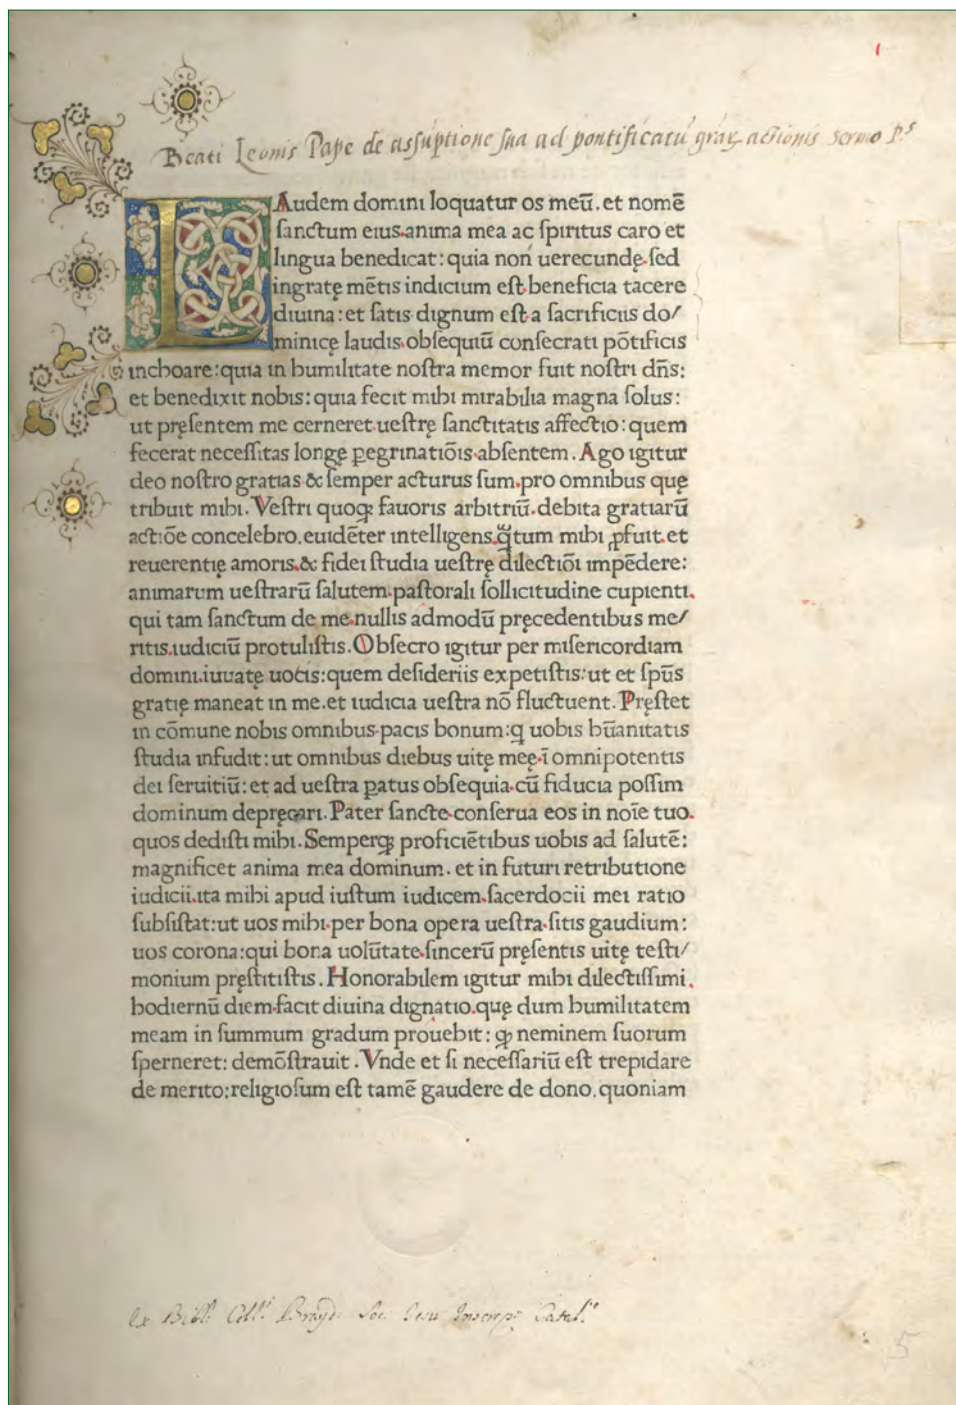 1
Beati Leonis Pape de assūptione sua ad pontificatū graꝝ actionis sermo pˢ
LAudem domini loquatur os meū. et nomē
sanctum eius.anima mea ac spiritus caro et
lingua benedicat: quia non uerecundę.sed
ingratę mētis indicium est.beneficia tacere
diuina: et satis dignum est.a sacrificiis do/
minicę laudis.obsequiū consecrati pōtificis
inchoare: quia in humilitate nostra memor fuit nostri dn̄s:
et benedixit nobis: quia fecit mihi mirabilia magna solus:
ut pręsentem me cerneret.uestrę sanctitatis affectio: quem
fecerat necessitas longę ꝑegrinatiōis.absentem. Ago igitur
deo nostro gratias & semper acturus sum.pro omnibus quę
tribuit mihi. Vestri quoqꝫ fauoris arbitriū.debita gratiarū
actiōe concelebro.euidēter intelligens.qͣtum mihi ꝓfuit.et
reuerentię amoris.& fidei studia uestrę dilectiōi impēdere:
animarum uestrarū salutem.pastorali sollicitudine cupienti.
qui tam sanctum de me.nullis admodū pręcedentibus me/
ritis.iudiciū protulistis. Obsecro igitur per misericordiam
domini.iuuatę uotis: quem desideriis expetistis: ut et sp̄us
gratię maneat in me.et iudicia uestra nō fluctuent. Pręstet
in cōmune nobis omnibus.pacis bonum: q uobis hūanitatis
studia infudit: ut omnibus diebus uitę meę.ī omnipotentis
dei seruitiū: et ad uestra ꝑatus obsequia.cū fiducia possim
dominum depręcari. Pater sancte.conserua eos in noīe tuo.
quos dedisti mihi. Semperqꝫ proficiētibus uobis ad salutē:
magnificet anima mea dominum. et in futuri retributione
iudicii.ita mihi apud iustum iudicem.sacerdocii mei ratio
subsistat: ut uos mihi.per bona opera uestra.sitis gaudium:
uos corona: qui bona uolūtate.sincerū pręsentis uitę testi/
monium pręstitistis. Honorabilem igitur mihi dilectissimi.
hodiernū diem.facit diuina dignatio.quę dum humilitatem
meam in summum gradum prouehit: ꝙ neminem suorum
sperneret: demōstrauit. Vnde et si necessariū est trepidare
de merito: religiosum est tamē gaudere de dono. quoniam
Ex Bibl. Coll. Brayd. Soc. Iesu Inscrip. Catal.
5